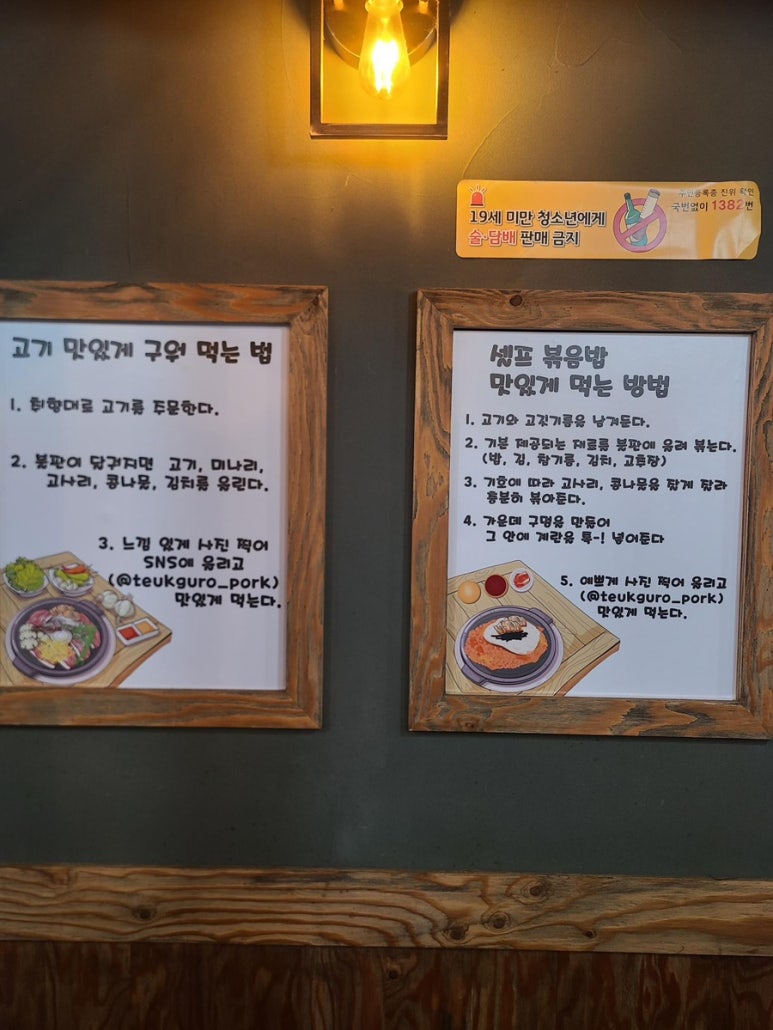 19세 미만 청소년에게
술·담배 판매 금지
주민등록증 진위 확인
국번없이 1382번
고기 맛있게 구워 먹는 법
1. 취향대로 고기를 주문한다.
2. 불판이 달궈지면 고기, 미나리,
고사리, 콩나물, 김치를 올린다.
3. 느낌 있게 사진 찍어
SNS에 올리고
(@teukguro_pork)
맛있게 먹는다.
셀프 볶음밥
맛있게 먹는 방법
1. 고기와 고깃기름을 남겨둔다.
2. 기본 제공되는 재료를 불판에 올려 볶는다.
(밥, 김, 참기름, 김치, 고추장)
3. 기호에 따라 고사리, 콩나물을 잘게 잘라
충분히 볶아준다.
4. 가운데 구멍을 만들어
그 안에 계란을 툭-! 넣어준다
5. 예쁘게 사진 찍어 올리고
(@teukguro_pork)
맛있게 먹는다.